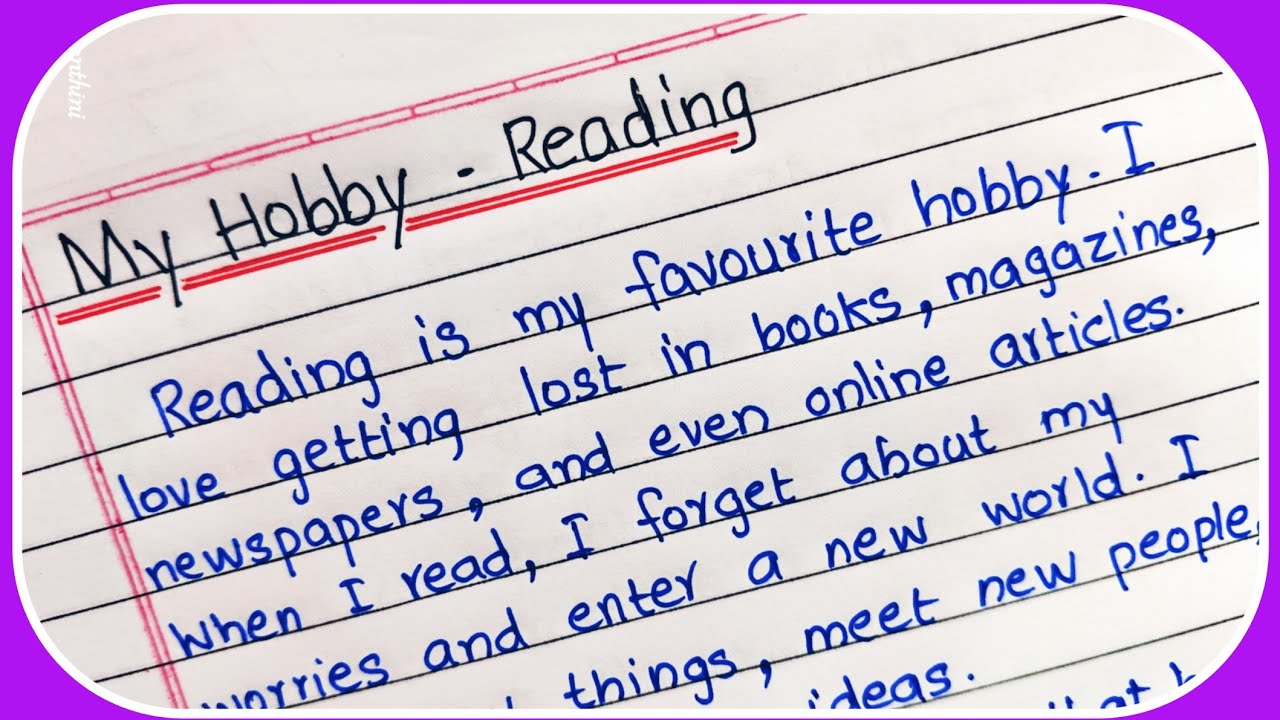 My Hobby - Reading
Reading is my favourite hobby. I
love getting lost in books, magazines,
newspapers, and even online articles.
When I read, I forget about my
worries and enter a new world. I
things, meet new people,
ideas.